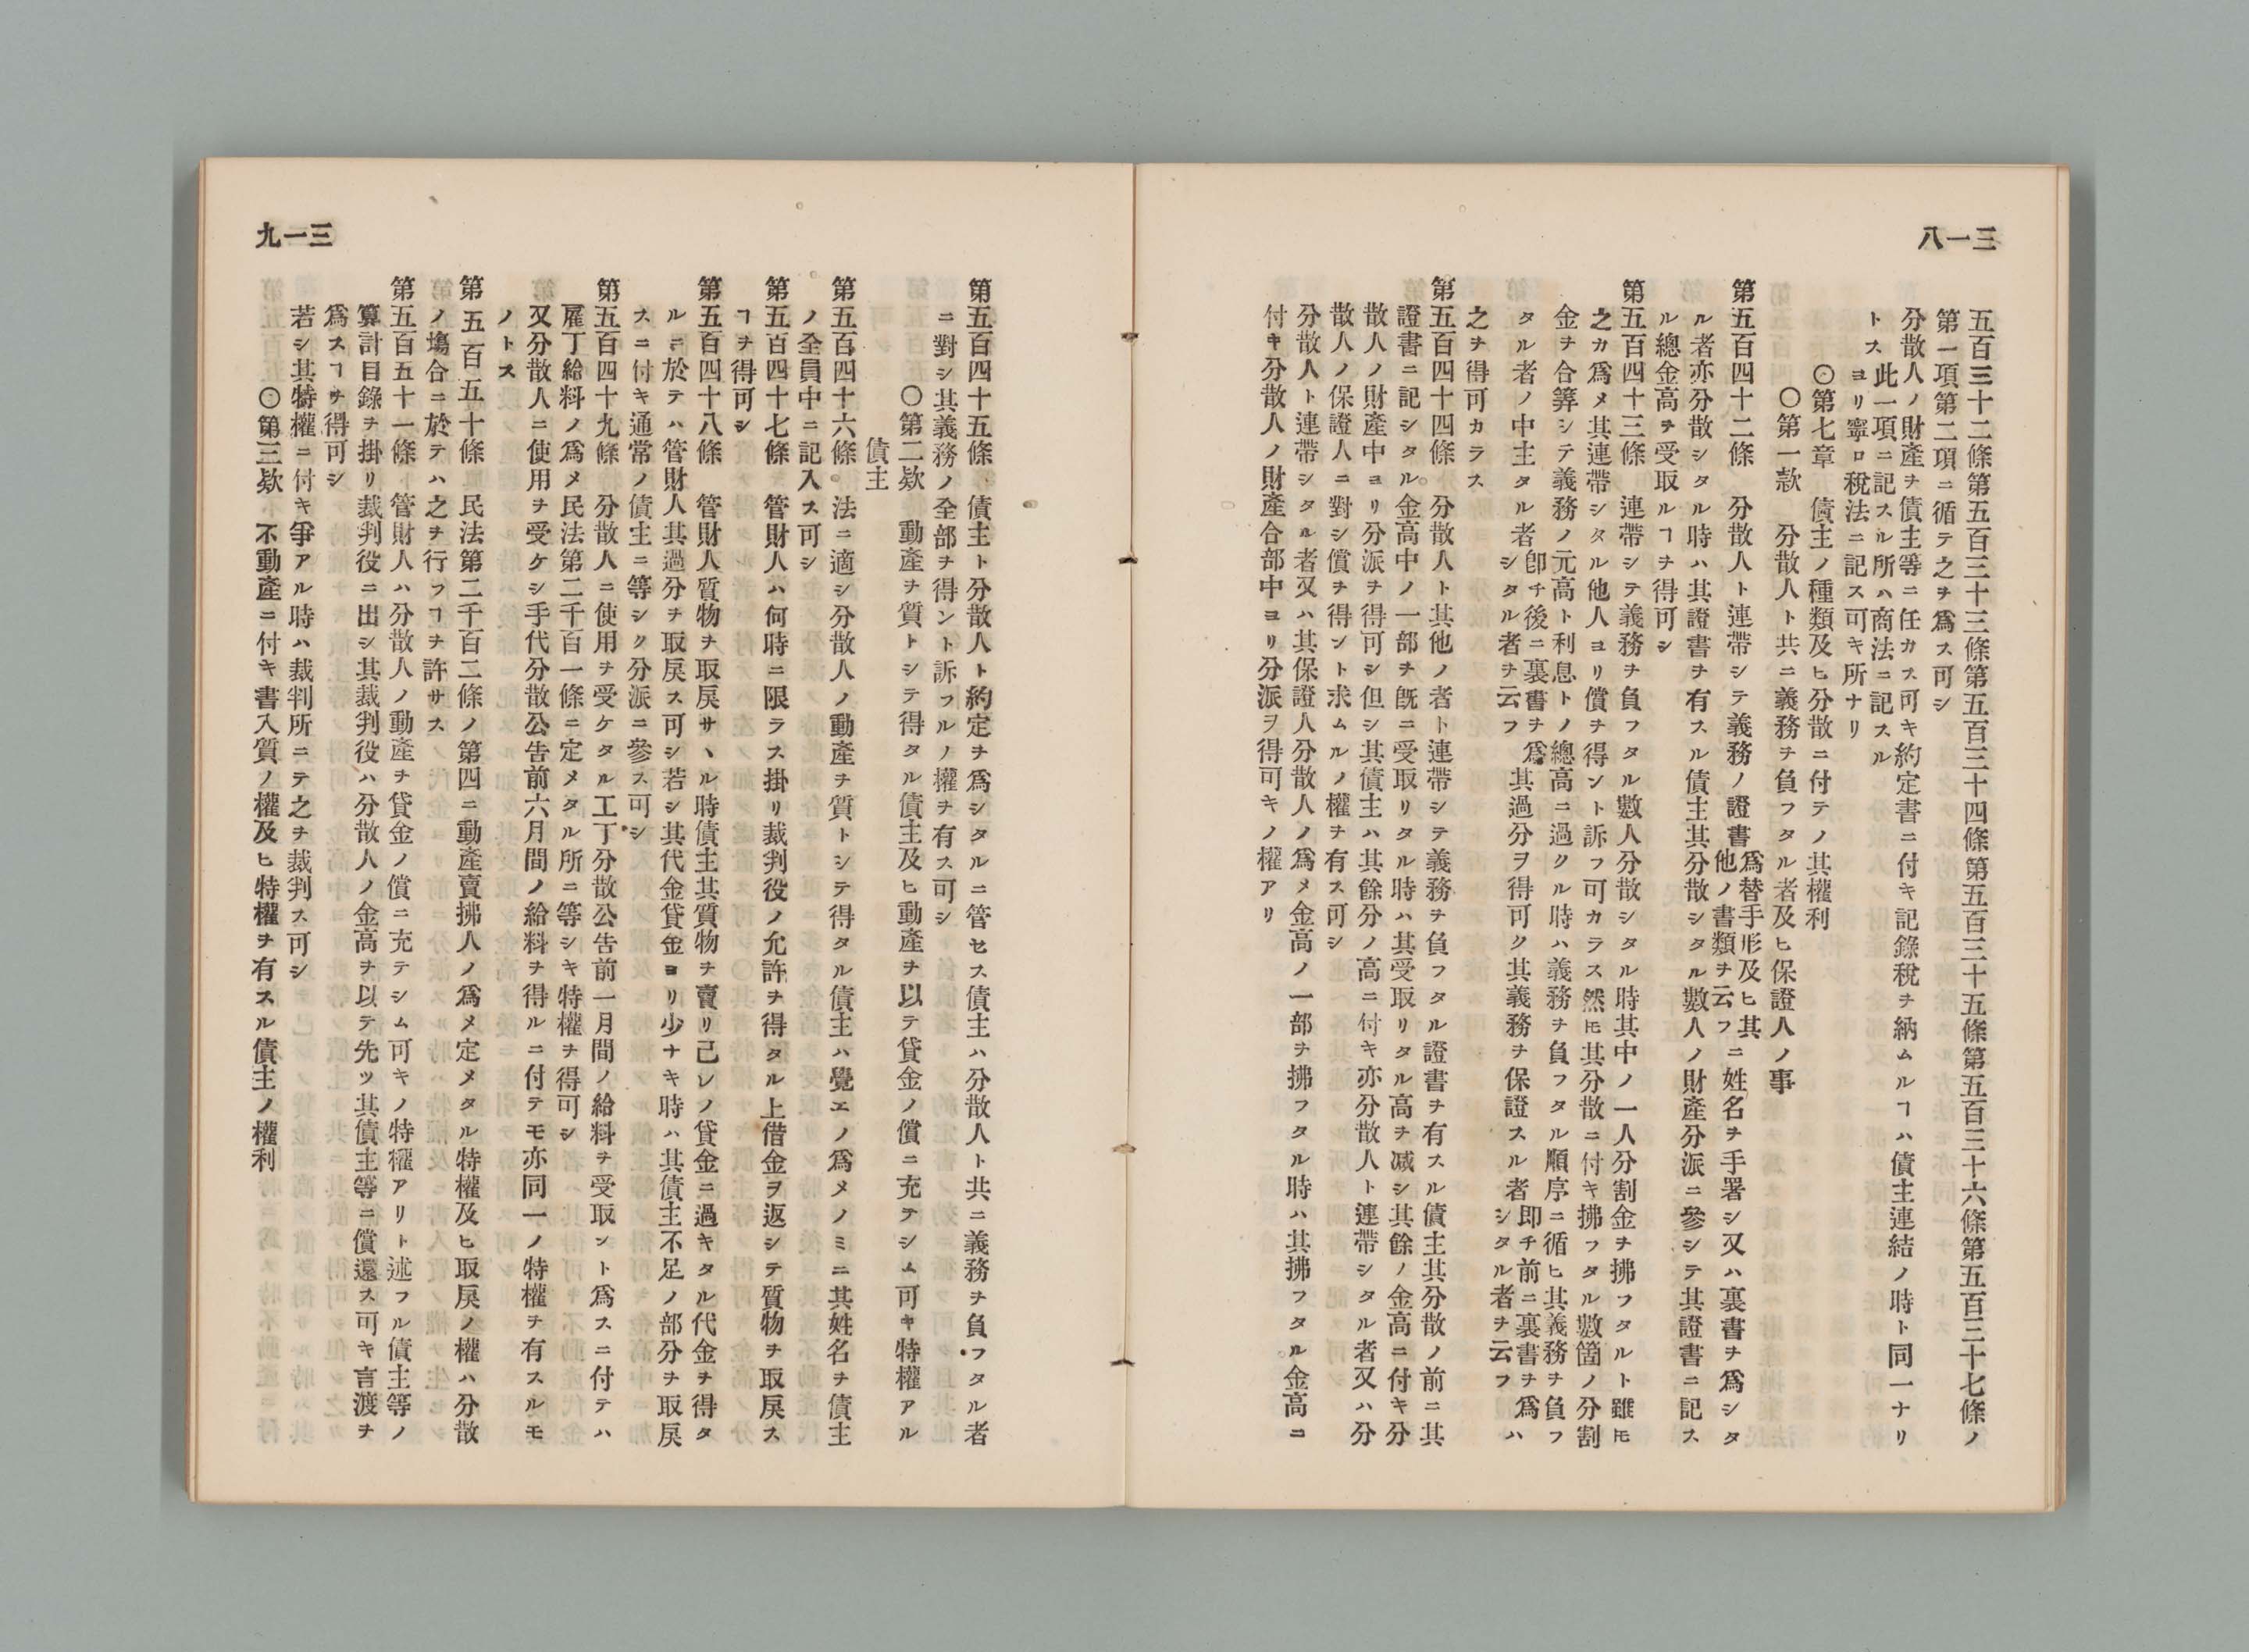 三一八
五百三十二條第五百三十三條第五百三十四條第五百三十五條第五百三十六條第五百三十七條ノ
第一項第二項ニ循テ之ヲ爲ス可シ
分散人ノ財產ヲ債主等ニ任カス可キ約定書ニ付キ記錄稅ヲ納ムルヿハ債主連結ノ時ト同一ナリ
トス此一項ニ記スル所ハ商法ニ記スル
ヨリ寧ロ稅法ニ記ス可キ所ナリ
〇第七章　債主ノ種類及ヒ分散ニ付テノ其權利
〇第一款　分散人ト共ニ義務ヲ負フタル者及ヒ保證人ノ事
第五百四十二條　分散人ト連帶シテ義務ノ證書爲替手形及ヒ其他ノ書類ヲ云フニ姓名ヲ手署シ又ハ裏書ヲ爲シタ
ル者亦分散シタル時ハ其證書ヲ有スル債主其分散シタル數人ノ財產分派ニ參シテ其證書ニ記ス
ル總金高ヲ受取ルヿヲ得可シ
第五百四十三條　連帶シテ義務ヲ負フタル數人分散シタル時其中ノ一人分割金ヲ拂フタルト雖𪜈
之カ爲メ其連帶シタル他人ヨリ償ヲ得ント訴フ可カラス然𪜈其分散ニ付キ拂フタル數箇ノ分割
金ヲ合算シテ義務ノ元高ト利息トノ總高ニ過クル時ハ義務ヲ負フタル順序ニ循ヒ其義務ヲ負フ
タル者ノ中主タル者卽チ後ニ裏書ヲ爲シタル者ヲ云フ其過分ヲ得可ク其義務ヲ保證スル者卽チ前ニ裏書ヲ爲シタル者ヲ云フハ
之ヲ得可カラス
第五百四十四條　分散人ト其他ノ者ト連帶シテ義務ヲ負フタル證書ヲ有スル債主其分散ノ前ニ其
證書ニ記シタル金高中ノ一部ヲ旣ニ受取リタル時ハ其受取リタル高ヲ減シ其餘ノ金高ニ付キ分
散人ノ財產中ヨリ分派ヲ得可シ但シ其債主ハ其餘分ノ高ニ付キ亦分散人ト連帶シタル者又ハ分
散人ノ保證人ニ對シ償ヲ得ント求ムルノ權ヲ有ス可シ
分散人ト連帶シタル者又ハ其保證人分散人ノ爲メ金高ノ一部ヲ拂フタル時ハ其拂フタル金高ニ
付キ分散人ノ財產合部中ヨリ分派ヲ得可キノ權アリ
三一九
第五百四十五條　債主ト分散人ト約定ヲ爲シタルニ管セス債主ハ分散人ト共ニ義務ヲ負フタル者
ニ對シ其義務ノ全部ヲ得ント訴フルノ權ヲ有ス可シ
〇第二欵　動產ヲ質トシテ得タル債主及ヒ動產ヲ以テ貸金ノ償ニ充テシム可キ特權アル
債主
第五百四十六條　法ニ適シ分散人ノ動產ヲ質トシテ得タル債主ハ覺エノ爲メノミニ其姓名ヲ債主
ノ全員中ニ記入ス可シ
第五百四十七條　管財人ハ何時ニ限ラス掛リ裁判役ノ允許ヲ得タル上借金ヲ返シテ質物ヲ取戾ス
ヿヲ得可シ
第五百四十八條　管財人質物ヲ取戾サヽル時債主其質物ヲ賣リ己レノ貸金ニ過キタル代金ヲ得タ
ルニ於テハ管財人其過分ヲ取戾ス可シ若シ其代金貸金ヨリ少ナキ時ハ其債主不足ノ部分ヲ取戾
スニ付キ通常ノ債主ニ等シク分派ニ參ス可シ
第五百四十九條　分散人ニ使用ヲ受ケタル工丁分散公告前一月間ノ給料ヲ受取ント爲スニ付テハ
雇丁給料ノ爲メ民法第二千百一條ニ定メタル所ニ等シキ特權ヲ得可シ
又分散人ニ使用ヲ受ケシ手代分散公告前六月間ノ給料ヲ得ルニ付テモ亦同一ノ特權ヲ有スルモ
ノトス
第五百五十條　民法第二千百二條ノ第四ニ動產賣拂人ノ爲メ定メタル特權及ヒ取戾ノ權ハ分散
ノ塲合ニ於テハ之ヲ行フヿヲ許サス
第五百五十一條　管財人ハ分散人ノ動產ヲ貸金ノ償ニ充テシム可キノ特權アリト述フル債主等ノ
算計目錄ヲ掛リ裁判役ニ出シ其裁判役ハ分散人ノ金高ヲ以テ先ツ其債主等ニ償還ス可キ言渡ヲ
爲スヿヲ得可シ
若シ其特權ニ付キ爭アル時ハ裁判所ニテ之ヲ裁判ス可シ
〇第三欵　不動產ニ付キ書入質ノ權及ヒ特權ヲ有スル債主ノ權利